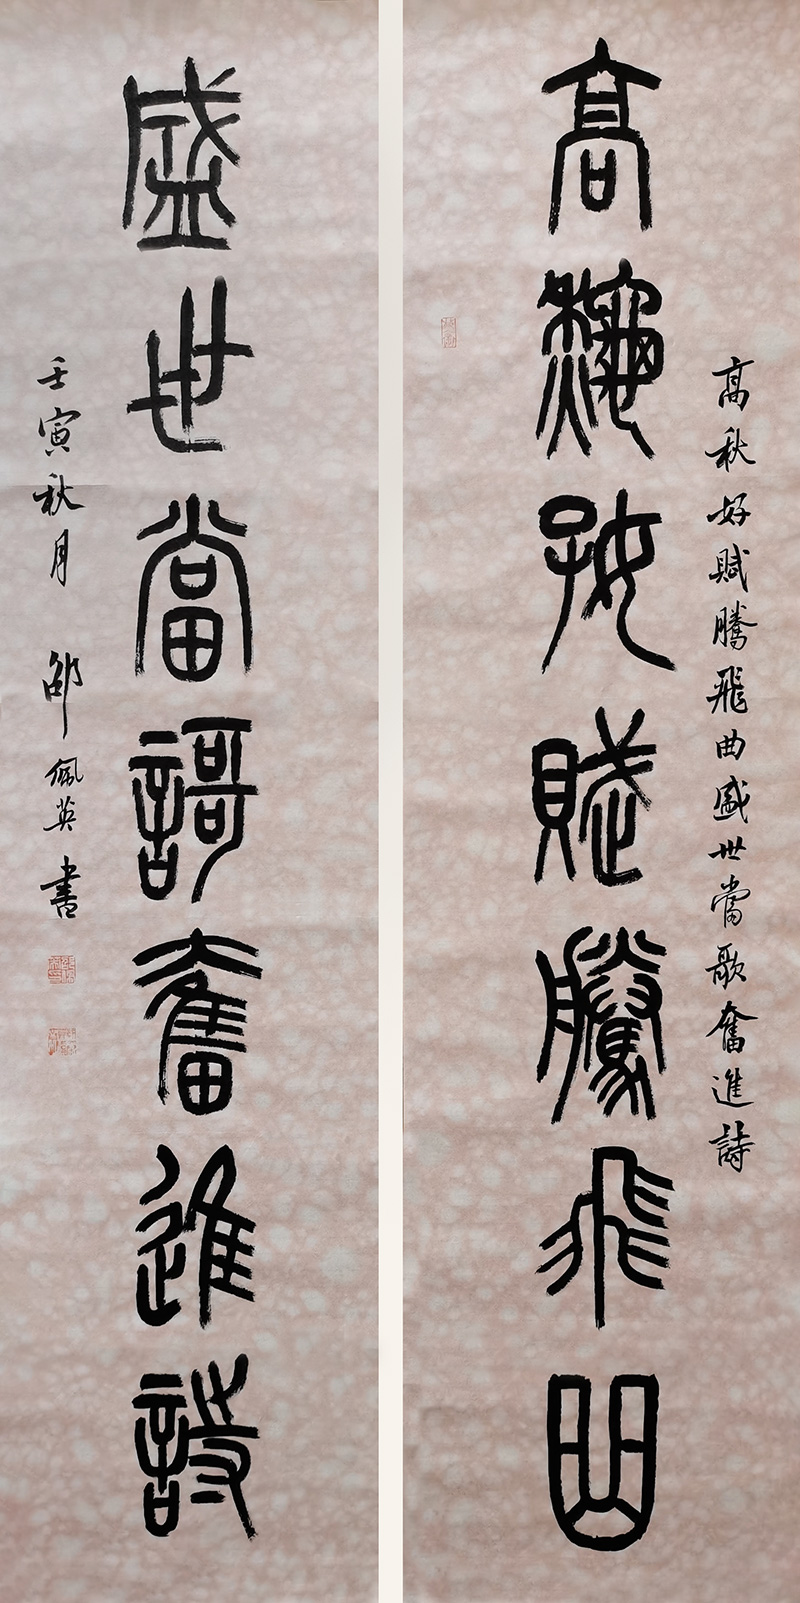 高秋好賦騰飛曲盛世當歌奮進詩
高龝好賦騰飛曲
盛世當謌奮進詩
壬寅秋月 邵佩英書